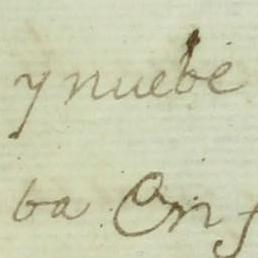 y nuebe
ba En